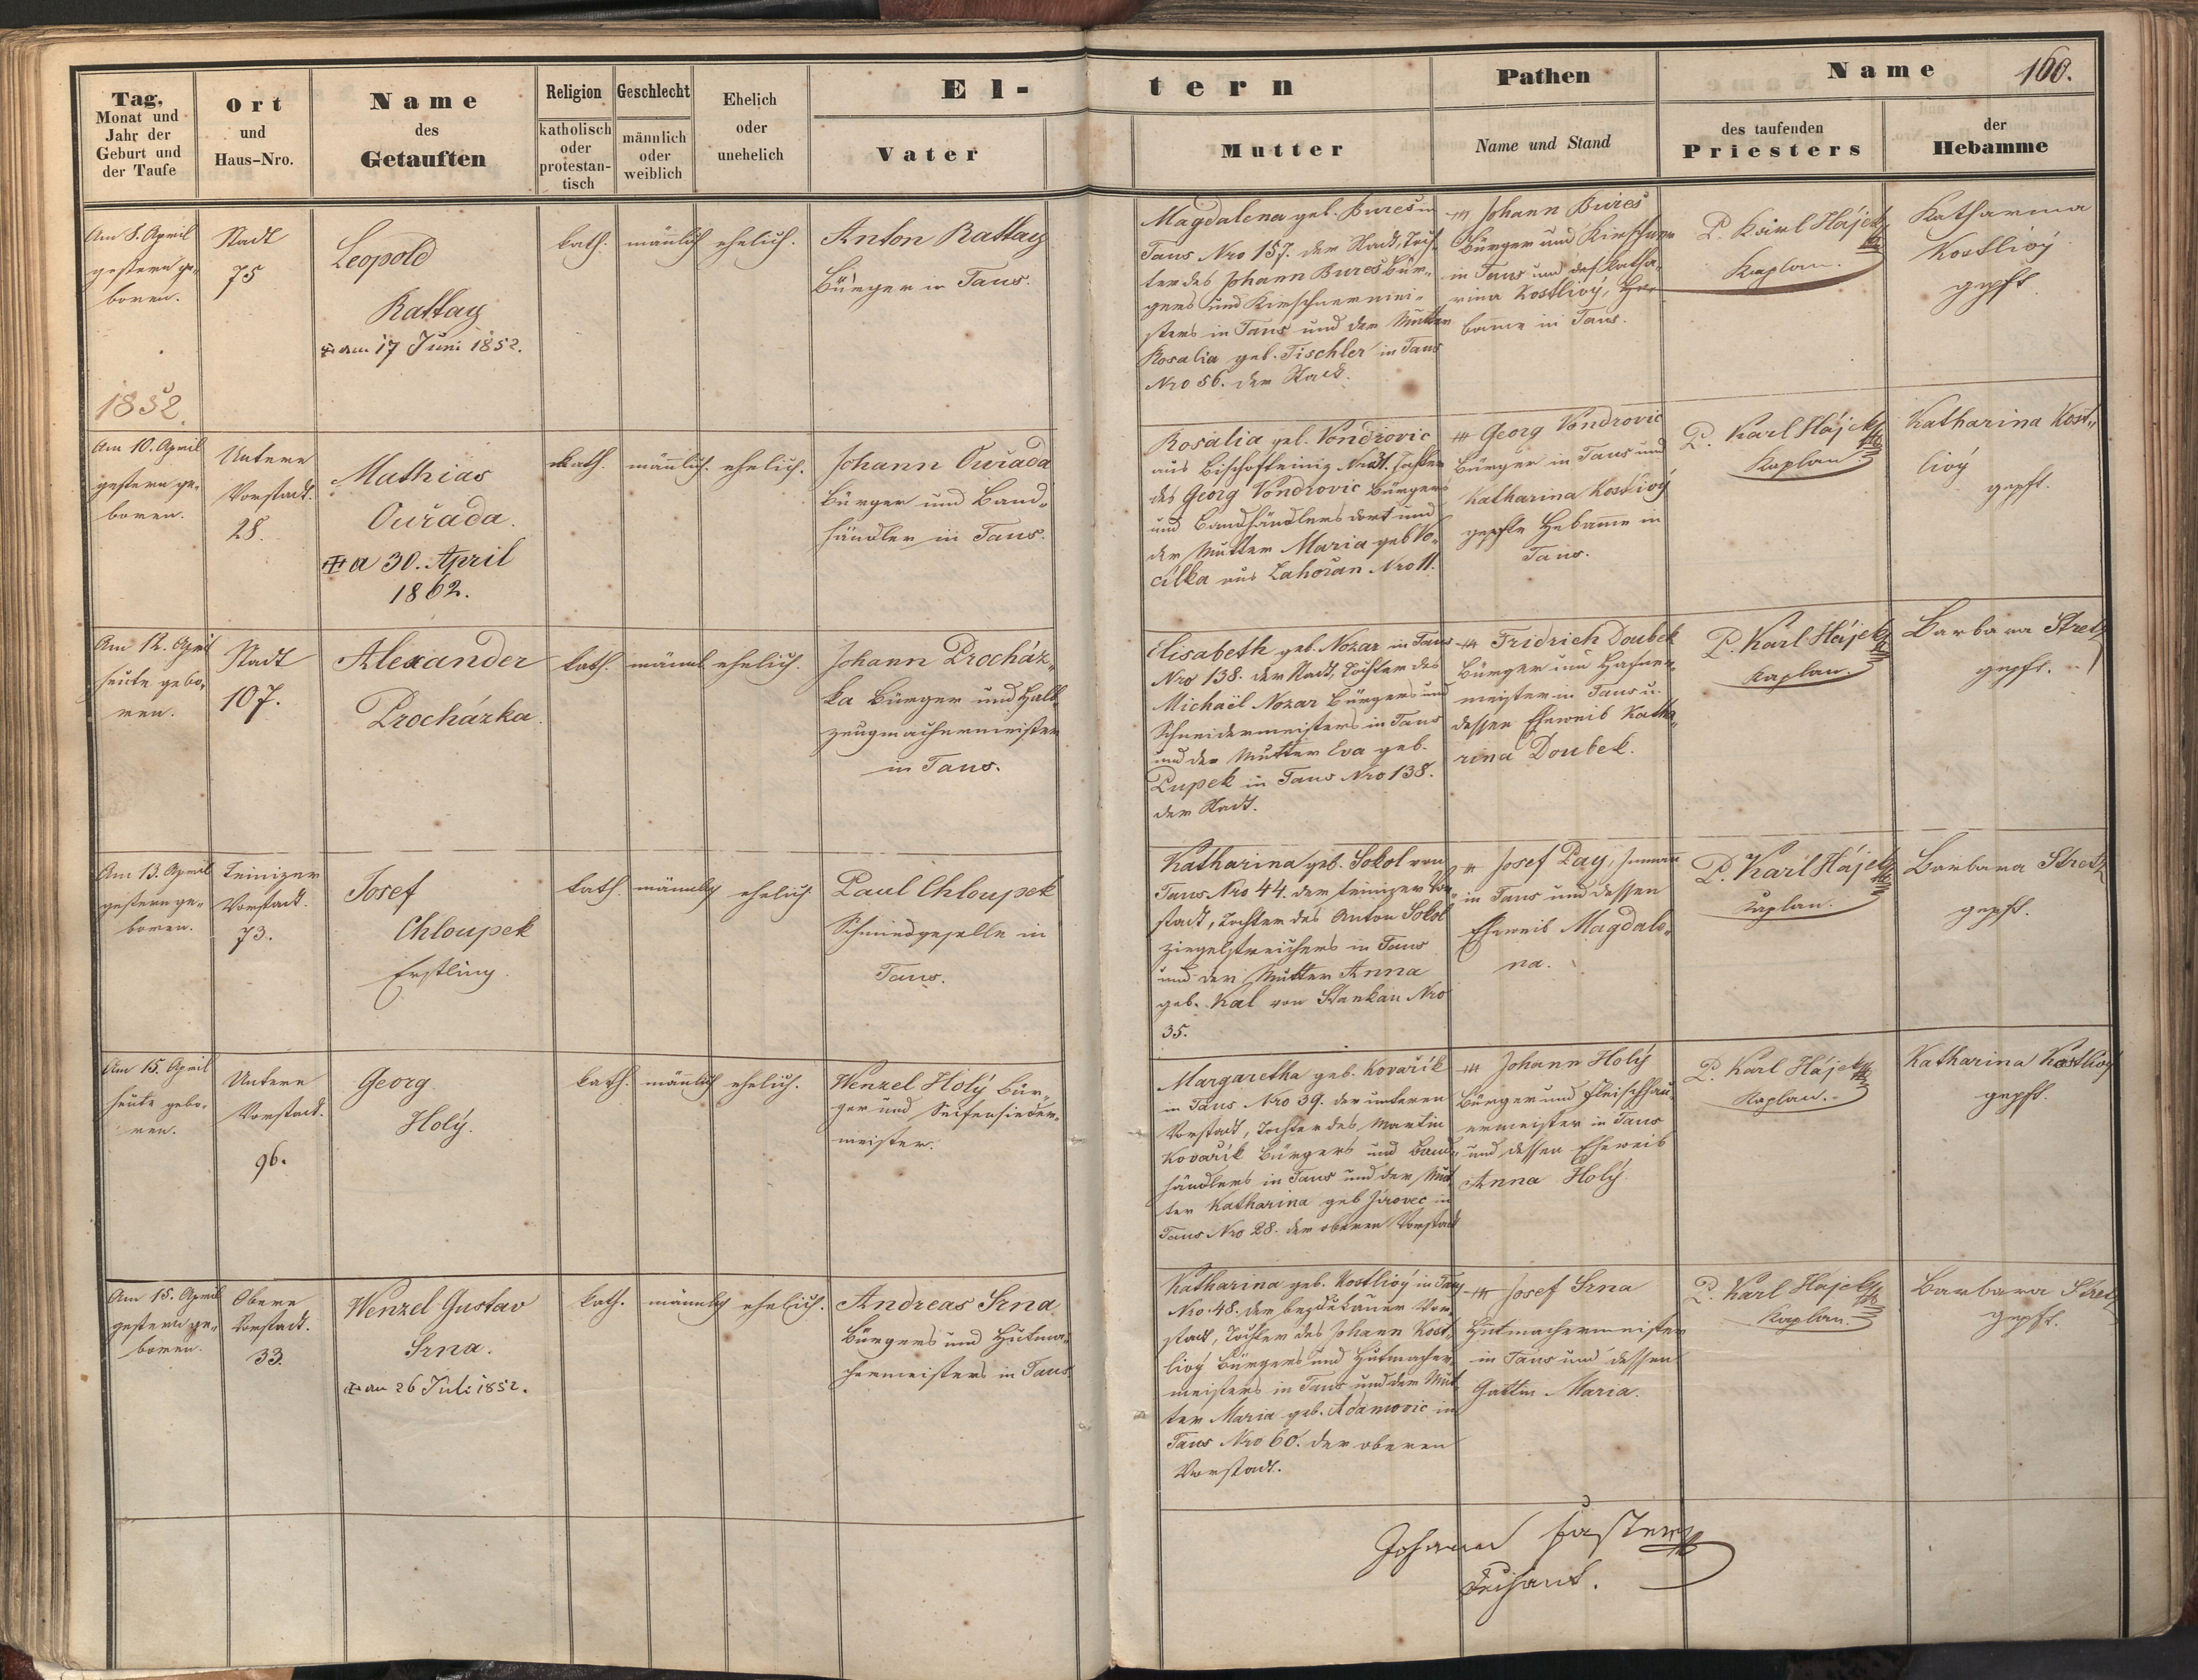 160.
Tag,
Monat und
Jahr der
Geburt und
der Taufe
Ort
und
Haus-Nro.
Name
des
Getauften
Religion
katholisch
oder
protestan-
tisch
Geschlecht
männlich
oder
weiblich
Ehelich
oder
unehelich
El-
Vater
tern
Mutter
Pathen
Name und Stand
Name
des taufenden
Priesters
der
Hebamme
Am 8. April
gestern ge-
boren.
1852.
Stadt
75
Leopold
Rattay
am 17 Juni 1852.
kath.
männlich
ehelich.
Anton Rattay
Bürger in Taus.
Magdalena geb. Bures in
Taus Nro 157. der Stadt, Toch-
ter des Johann Bures Bür-
gers und Kirschnermei-
sters in Taus und der Mutter
Rosalia geb. Tischler in Taus
Nro 56. der Stadt.
Johann Bures
Bürger und Kirschner
in Taus und des Katha-
rina Kostlivý, He-
bamme in Taus.
P. Karl Hájek
Kaplan.
Katharina
Kostlivý
gepft.
Am 10. April
gestern ge-
boren.
Untere
Vorstadt.
28.
Mathias
Ouřada.
a 30. April
1862.
kath.
männlich.
ehelich.
Johann Ouřada
Bürger und Band-
händler in Taus.
Rosalia geb. Vondrovic
aus Bischofteinig Nro 31. Tochter
des Georg Vondrovic Bürgers
und Bandhändlers dort und
der Mutter Maria geb. Vo-
cilka aus Zahořan Nro 11.
Georg Vondrovic
Bürger in Taus und
Katharina Kostlivý
gepfte Hebamme in
Taus.
P. Karl Hájek
Kaplan
Katharina Kost-
livý
gepft.
Am 12. April
heute gebo-
ren.
Stadt
107.
Alexander
Procházka.
kath.
männl.
ehelich.
Johann Procház-
ka Bürger und Halb-
zeugmachermeister
in Taus.
Elisabeth geb. Nozar in Taus
Nro 138. der Stadt, Tochter des
Michaël Nozar Bürgers und
Schneidermeisters in Taus
und der Mutter Eva geb.
Pupek in Taus Nro 138.
der Stadt.
Fridrich Doubek
Bürger und Hafner-
meister in Taus u.
dessen Eheweib Katha-
rina Doubek.
P. Karl Hájek
Kaplan.
Barbara Stretz
gepft.
Am 13. April
gestern ge-
boren.
Teinizer
Vorstadt.
73.
Josef
Chloupek
Erstling.
kath.
männlich
ehelich
Paul Chloupek
Schmiedgeselle in
Taus.
Katharina geb. Sokol von
Taus Nro 44. der teinizer Vor-
stadt, Tochter des Anton Sokol
Ziegelstreichers in Taus
und der Mutter Anna
geb. Kal von Stankau Nro
35.
Josef Pay, Inmann
in Taus und dessen
Eheweib Magdale-
na.
P. Karl Hájek
Kaplan.
Barbara Stretz
gepft.
Am 15. April
heute gebo-
ren.
Untere
Vorstadt.
96.
Georg
Holý.
kath.
männlich
ehelich.
Wenzel Holý Bür-
ger und Seifensieder-
meister.
Margaretha geb. Kovařík
in Taus Nro 39. der unteren
Vorstadt, Tochter des Martin
Kovařík Bürgers und Band-
händlers in Taus und der Mut-
ter Katharina geb Jirovec in
Taus Nro 28. der oberen Vorstadt
Johann Holý
Bürger und Fleischhau-
ermeister in Taus
und dessen Eheweib
Anna Holý.
P. Karl Hájek
Kaplan.
Katharina Kostlivý
gepft.
Am 15. April
gestern ge-
boren.
Obere
Vorstadt.
33.
Wenzel Gustav
Srna.
am 26 Juli 1852.
kath.
männlich
ehelich.
Andreas Srna
Bürgers und Hutma-
chermeisters in Taus
Katharina geb. Kostlivý in Taus
Nro 48. der bezdiekauer Vor-
stadt, Tochter des Johann Kost-
livý Bürgers und Hutmacher-
meisters in Taus und der Mut-
ter Maria geb. Adamovic in
Taus Nro 60. der oberen
Vorstadt.
Josef Srna
Hutmachermeister
in Taus und dessen
Gattin Maria.
P. Karl Hájek
Kaplan.
Barbara Stretz
gepft.
Johann
Dechant.